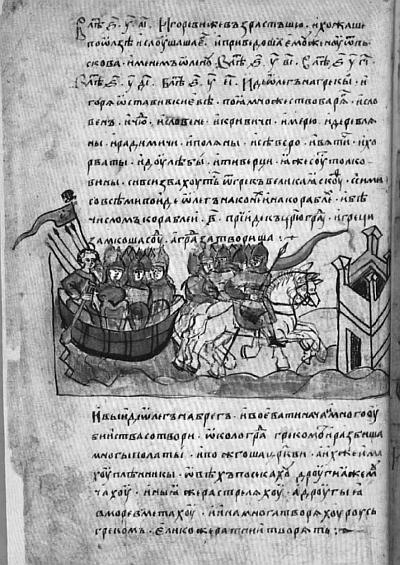 В лѣ҃ ҂ѕ҃ у҃ аі҃ . Игореви же възрастъшю . и хожаше
по ѡлзѣ и слоушаша е҃ . и приведоша емоу женоу ѿ пь
скова . именемъ ѡлену . В лѣ҃ ҂ѕ҃ у҃ ві҃ . В лѣ҃ ҂ѕ҃ у҃ гі҃
В лѣ҃ ҂ѕ҃ у҃ ді҃ . В лѣ҃ ҂ѕ҃ у҃ еі҃ . Иде ѡлегъ на грекы . и
горѧ ѡстави в киевѣ . поѧ множество варѧ . и сло
венъ . и чю҃ . и словене . и кривичи . и мерю . и деревлѧ
ны . и радимичи . и полѧны . и сѣверо . и вѧтичи . и хо
рваты . и доулѣбы . и тиверци . ꙗже соу толко
вины . си вси звахоуть ѿ грекъ великаѧ скоуѳ . с сими
со всѣми поиде ѡлегъ на конѣ и на корабле . и бѣ
числомъ кораблеи . в҃ . прїиде къ цр҃югра҃ . и греци
замкоша соу҃ . а гра҃ затвориша :~
И выиде ѡлегъ на брегъ . и воевати нача . и много оу
биства сотвори . ѡколо гра҃ грекомъ . и разбиша
многы полаты . и пожгоша цр҃кви . а ихже има
хоу плѣнникы . ѡвѣхъ посекахоу . дроугиꙗ же м
чахоу . иныꙗ же растрелѧхоу . а дроугыꙗ
в море вметахоу . и ина многа творѧхоу роусь
грекомъ . елико же ратнии творѧть :~